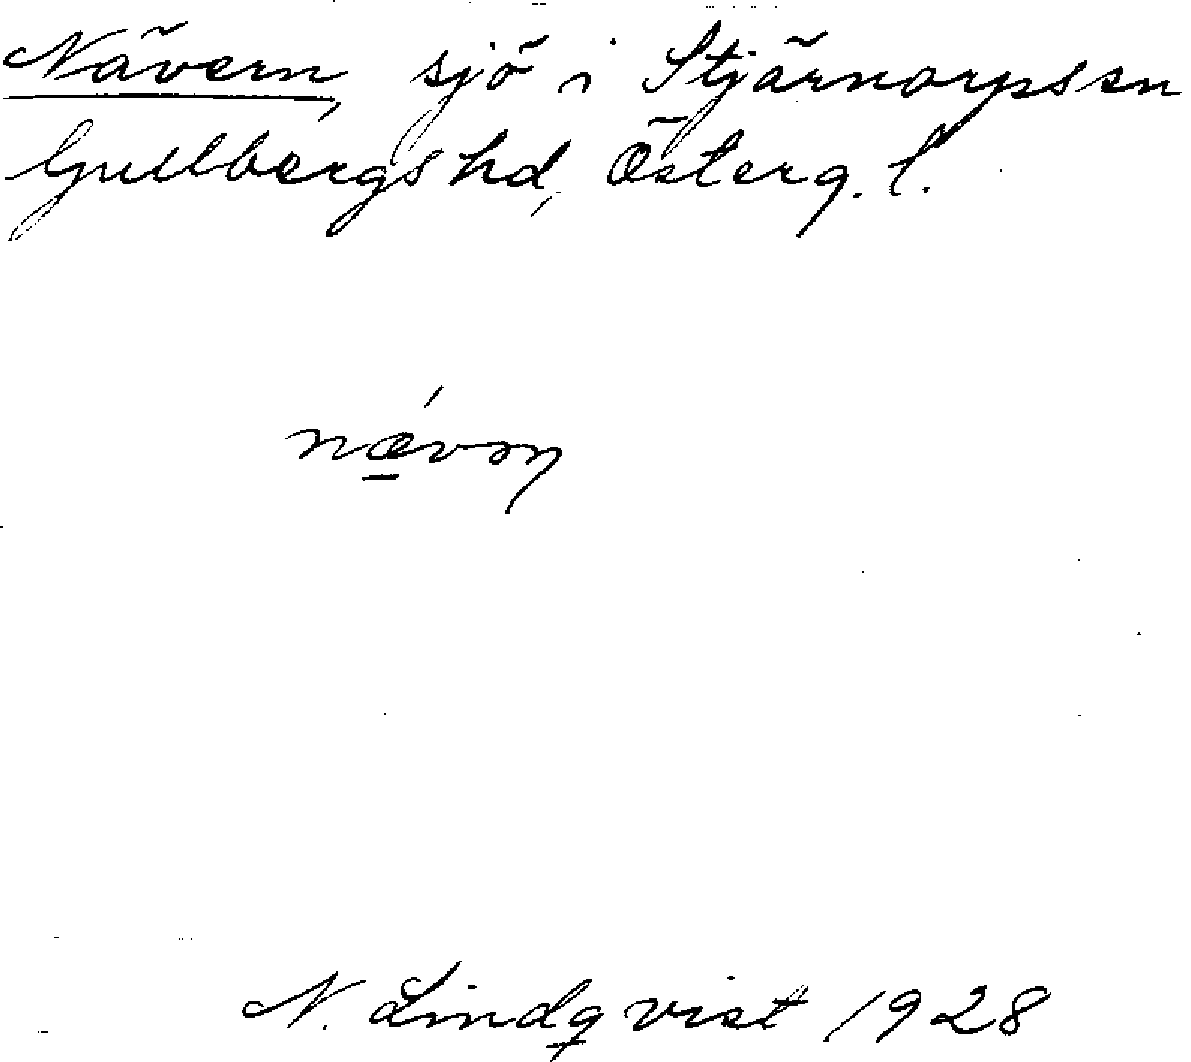 Nävern, sjö i Stjärnorps sn
Gullbergs hd, Österg. l.
nǽ̲vəɳ
N. Lindqvist 1928